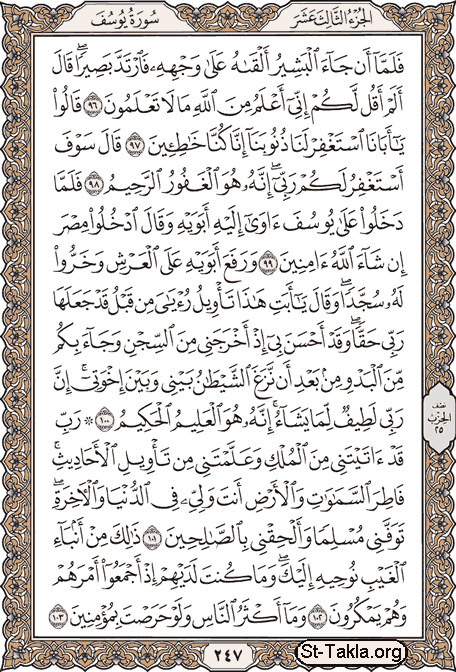 سُورَةُ يُوسُفَ
الجُزْءُ الثَّالِثَ عَشَرَ
فَلَمَّآ أَن جَآءَ ٱلْبَشِيرُ أَلْقَىٰهُ عَلَىٰ وَجْهِهِۦ فَٱرْتَدَّ بَصِيرًا ۖ قَالَ
أَلَمْ أَقُل لَّكُمْ إِنِّىٓ أَعْلَمُ مِنَ ٱللَّهِ مَا لَا تَعْلَمُونَ ٩٦ قَالُوا۟
يَـٰٓأَبَانَا ٱسْتَغْفِرْ لَنَا ذُنُوبَنَآ إِنَّا كُنَّا خَـٰطِـِٔينَ ٩٧ قَالَ سَوْفَ
أَسْتَغْفِرُ لَكُمْ رَبِّىٓ ۖ إِنَّهُۥ هُوَ ٱلْغَفُورُ ٱلرَّحِيمُ ٩٨ فَلَمَّا
دَخَلُوا۟ عَلَىٰ يُوسُفَ ءَاوَىٰٓ إِلَيْهِ أَبَوَيْهِ وَقَالَ ٱدْخُلُوا۟ مِصْرَ
إِن شَآءَ ٱللَّهُ ءَامِنِينَ ٩٩ وَرَفَعَ أَبَوَيْهِ عَلَى ٱلْعَرْشِ وَخَرُّوا۟
لَهُۥ سُجَّدًا ۖ وَقَالَ يَـٰٓأَبَتِ هَـٰذَا تَأْوِيلُ رُءْيَـٰىَ مِن قَبْلُ قَدْ جَعَلَهَا
رَبِّى حَقًّا ۖ وَقَدْ أَحْسَنَ بِىٓ إِذْ أَخْرَجَنِى مِنَ ٱلسِّجْنِ وَجَآءَ بِكُم
مِّنَ ٱلْبَدْوِ مِنۢ بَعْدِ أَن نَّزَغَ ٱلشَّيْطَـٰنُ بَيْنِى وَبَيْنَ إِخْوَتِىٓ ۚ إِنَّ
رَبِّى لَطِيفٌ لِّمَا يَشَآءُ ۚ إِنَّهُۥ هُوَ ٱلْعَلِيمُ ٱلْحَكِيمُ ١٠٠ ۞ رَبِّ
قَدْ ءَاتَيْتَنِى مِنَ ٱلْمُلْكِ وَعَلَّمْتَنِى مِن تَأْوِيلِ ٱلْأَحَادِيثِ ۚ
فَاطِرَ ٱلسَّمَـٰوَٰتِ وَٱلْأَرْضِ أَنتَ وَلِىِّۦ فِى ٱلدُّنْيَا وَٱلْـَٔاخِرَةِ ۖ
تَوَفَّنِى مُسْلِمًا وَأَلْحِقْنِى بِٱلصَّـٰلِحِينَ ١٠١ ذَٰلِكَ مِنْ أَنۢبَآءِ
ٱلْغَيْبِ نُوحِيهِ إِلَيْكَ ۖ وَمَا كُنتَ لَدَيْهِمْ إِذْ أَجْمَعُوٓا۟ أَمْرَهُمْ
وَهُمْ يَمْكُرُونَ ١٠٢ وَمَآ أَكْثَرُ ٱلنَّاسِ وَلَوْ حَرَصْتَ بِمُؤْمِنِينَ ١٠٣
نصف
الحزب
٢٥
٢٤٧
St-Takla.org